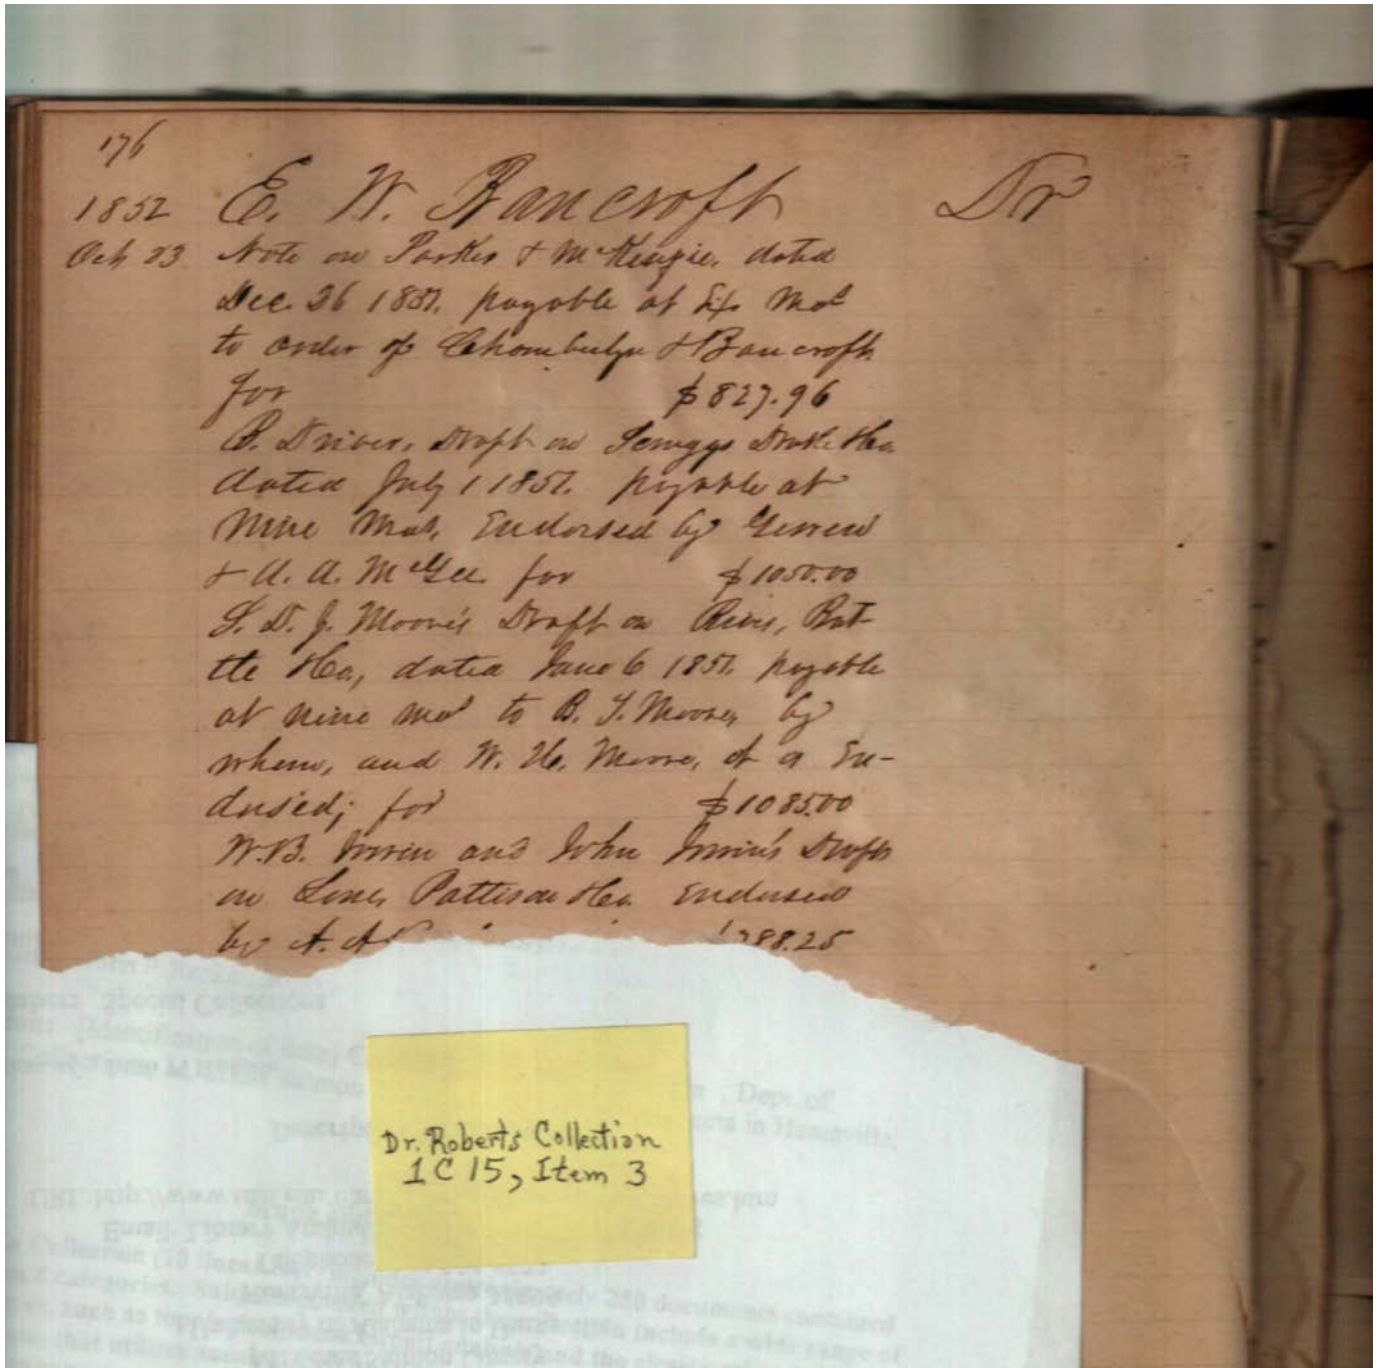 176
1852 E. W. Bancroft Dr
Oct 23 Note on Parkes & McKenzie, dated
Dec. 26 1851, payable at Six Mos
to order of & Bancroft
for $827.96
B. Driver, Draft on Scruggs Drake & Co.
dated July 1 1851. payable at
Nine Mos, Endorsed by
& A. A. McGee for $1050.00
S. D. J. Moore's Draft on Rives, Bat-
tle & Co, dated June 6 1851. payable
at nine mos to B. T. Moore, by
whom, and W. H. Moore, it is En-
dorsed; for $1085.00
W. B. Irwin and John Irwin's Drafts
on Pattison & Co. Endorsed
by A. A 288.25
Dr. Roberts Collection
1C15, Item 3